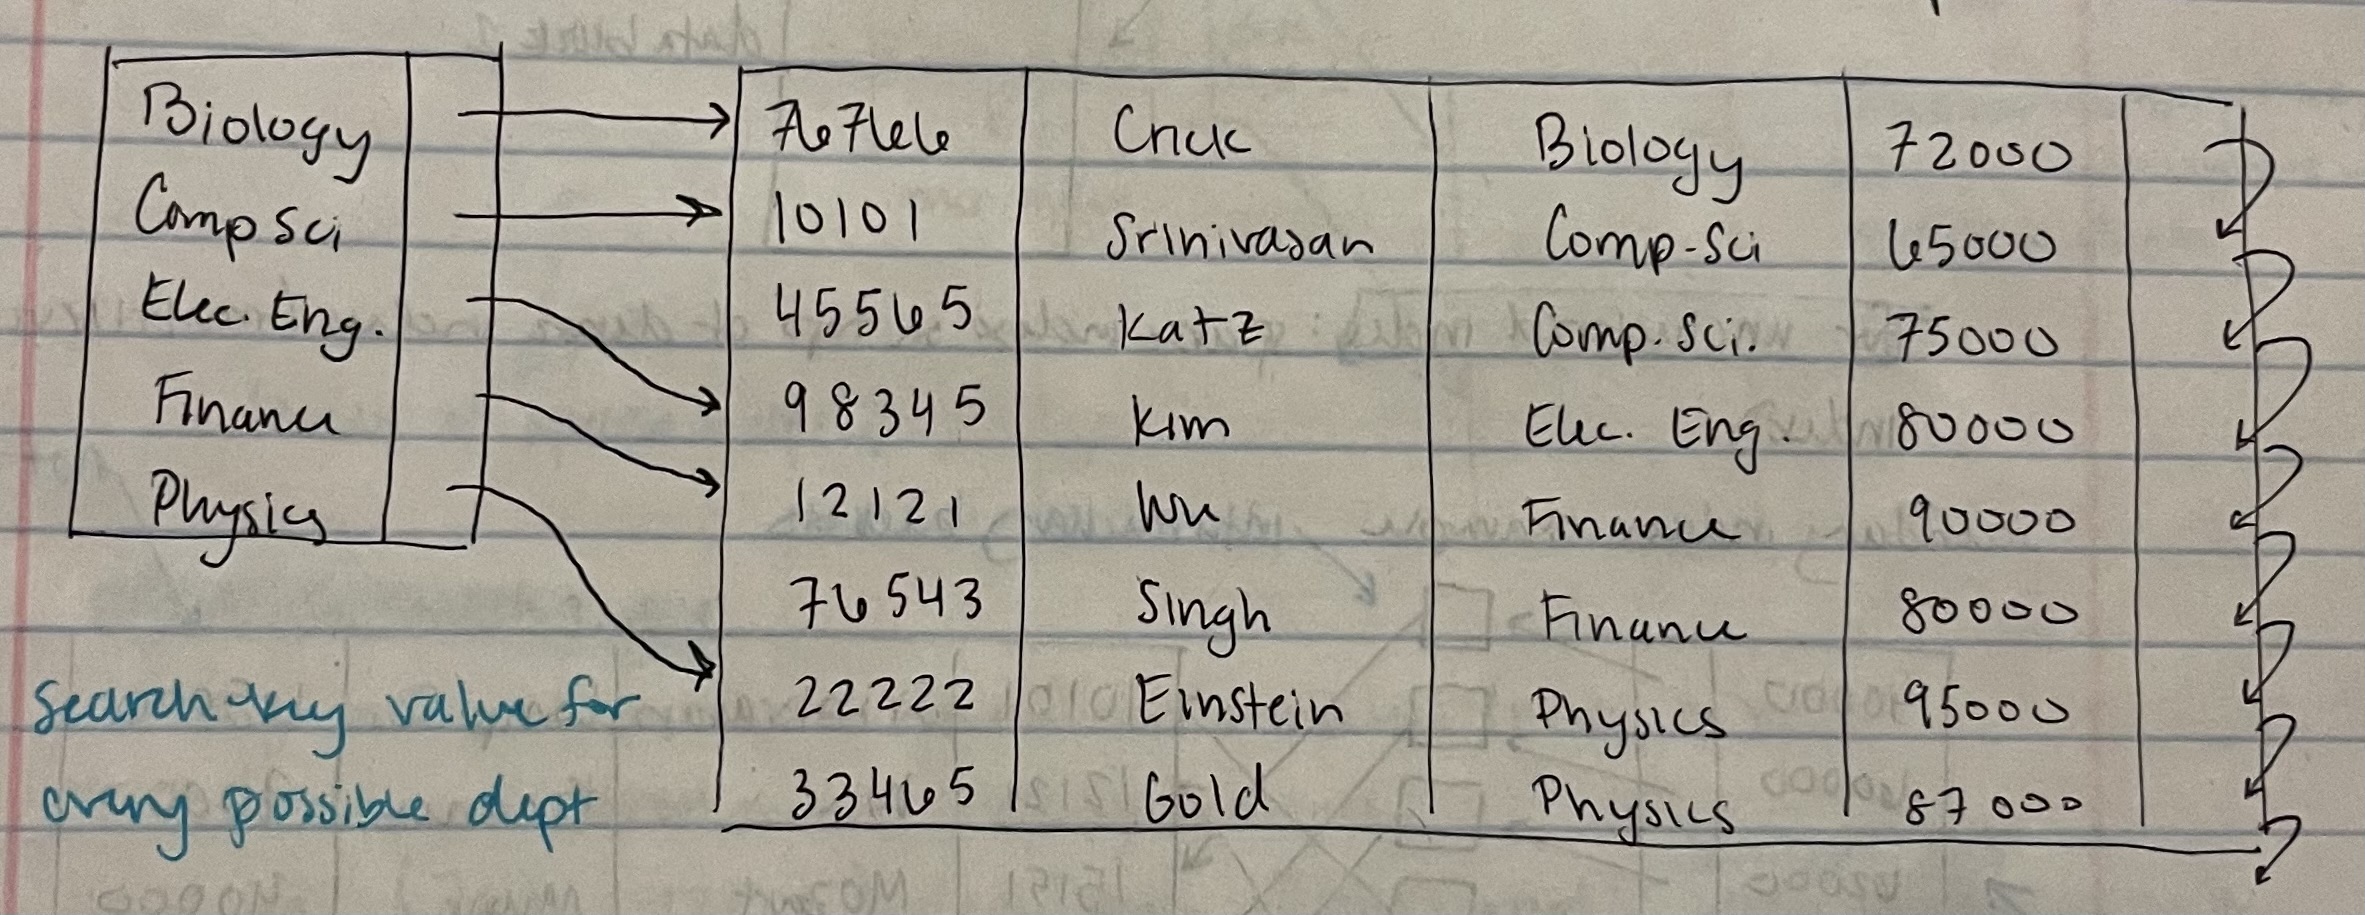 Biology
Comp Sci
Elec. Eng.
Finance
Physics
76766 Crick Biology 72000
10101 Srinivasan Comp-Sci 65000
45565 Katz Comp. Sci. 75000
98345 Kim Elec. Eng. 80000
12121 Wu Finance 90000
76543 Singh Finance 80000
22222 Einstein Physics 95000
33465 Gold Physics 87000
search-key value for
every possible dept